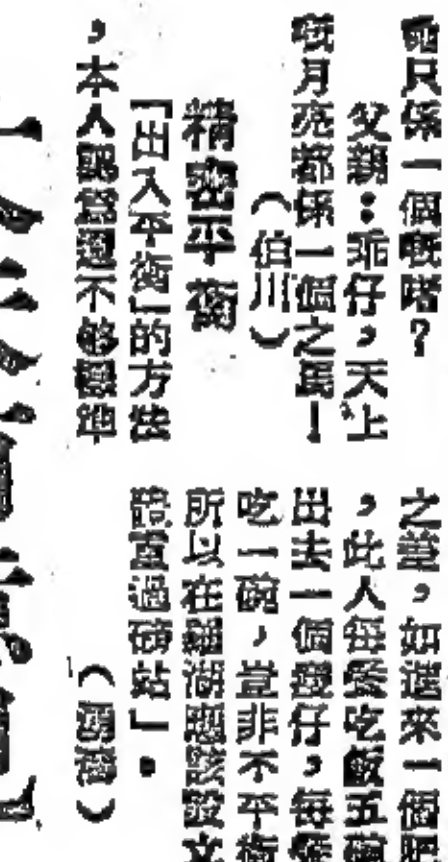 呢只係一個嘅啫?
父親:乖仔,天上
嘅月亮都係一個之馬!
(伯川)
精密平衡
「出入平衡」的方法
,本人認為還不够標準
之差,如進來一個肥
,此人每餐吃飯五碗
出去一個瘦仔,每餐
吃一碗,豈非不平衡
所以在羅湖應該設
體重過磅站」。